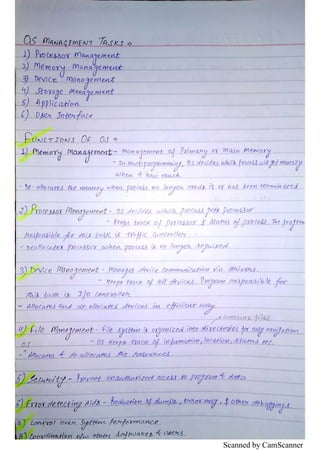 OS MANAGEMENT TASKS
1) Processor Management
2) Memory Management
3) Device Management
4) Storage Management
5) Application
6) User Interface
FUNCTIONS OF OS
1) Memory Management - management of Primary or Main Memory
- In multiprogramming, OS decides which process will get memory
when & how much
- De-allocates the memory when process no longer needs it or has been terminated
2) Processor Management - OS decides which process gets processor
- Keeps track of processor & status of process. The program
responsible for this task is traffic controller
- De-allocates processor when process is no longer required
3) Device Management - Manages device communication via drivers.
- Keeps track of all devices. Program responsible for
this task is I/O controller
- Allocates and de-allocates devices in efficient way
files
4) File Management - File system is organized into directories for easy navigation
OS - OS keeps track of information, location, status etc.
- Allocates & de-allocates the resources.
5) Security - Prevent unauthorized access to program & data
6) Error detecting Aids - Production of dumps, error msg, & other debuggings
7) Control over System Performance
8) Coordination b/w other softwares & users.
Scanned by CamScanner